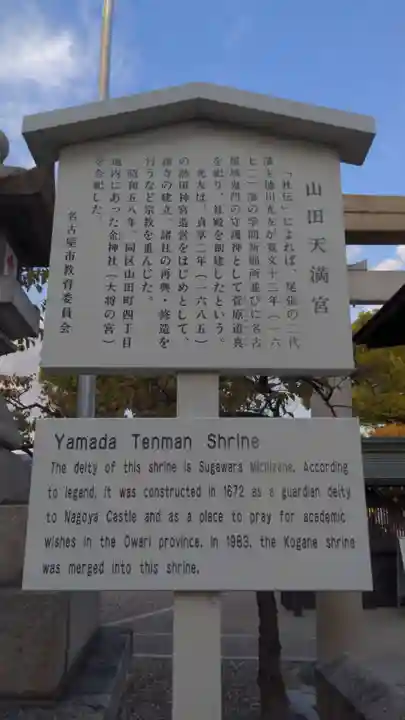 山田天満宮
「社伝」によれば、尾張の二代
藩主徳川光友が寛文十二年(一六
七二)藩の学問祈願所並びに名古
屋城鬼門の守護神として菅原道真
を祀り、社殿を創建したという。
光友は、貞享二年(一六八五)
の熱田神宮造営をはじめとして、
諸寺の建立、諸社の再興・修造を
行うなど宗教を重んじた。
昭和五八年、同区山田町四丁目
地内にあった金神社(大将の宮)
を合祀した。
名古屋市教育委員会
Yamada Tenman Shrine
The deity of this shrine is Sugawara Michizane. According
to legend, it was constructed in 1672 as a guardian deity
to Nagoya Castle and as a place to pray for academic
wishes in the Owari province. In 1983, the Kogane shrine
was merged into this shrine.